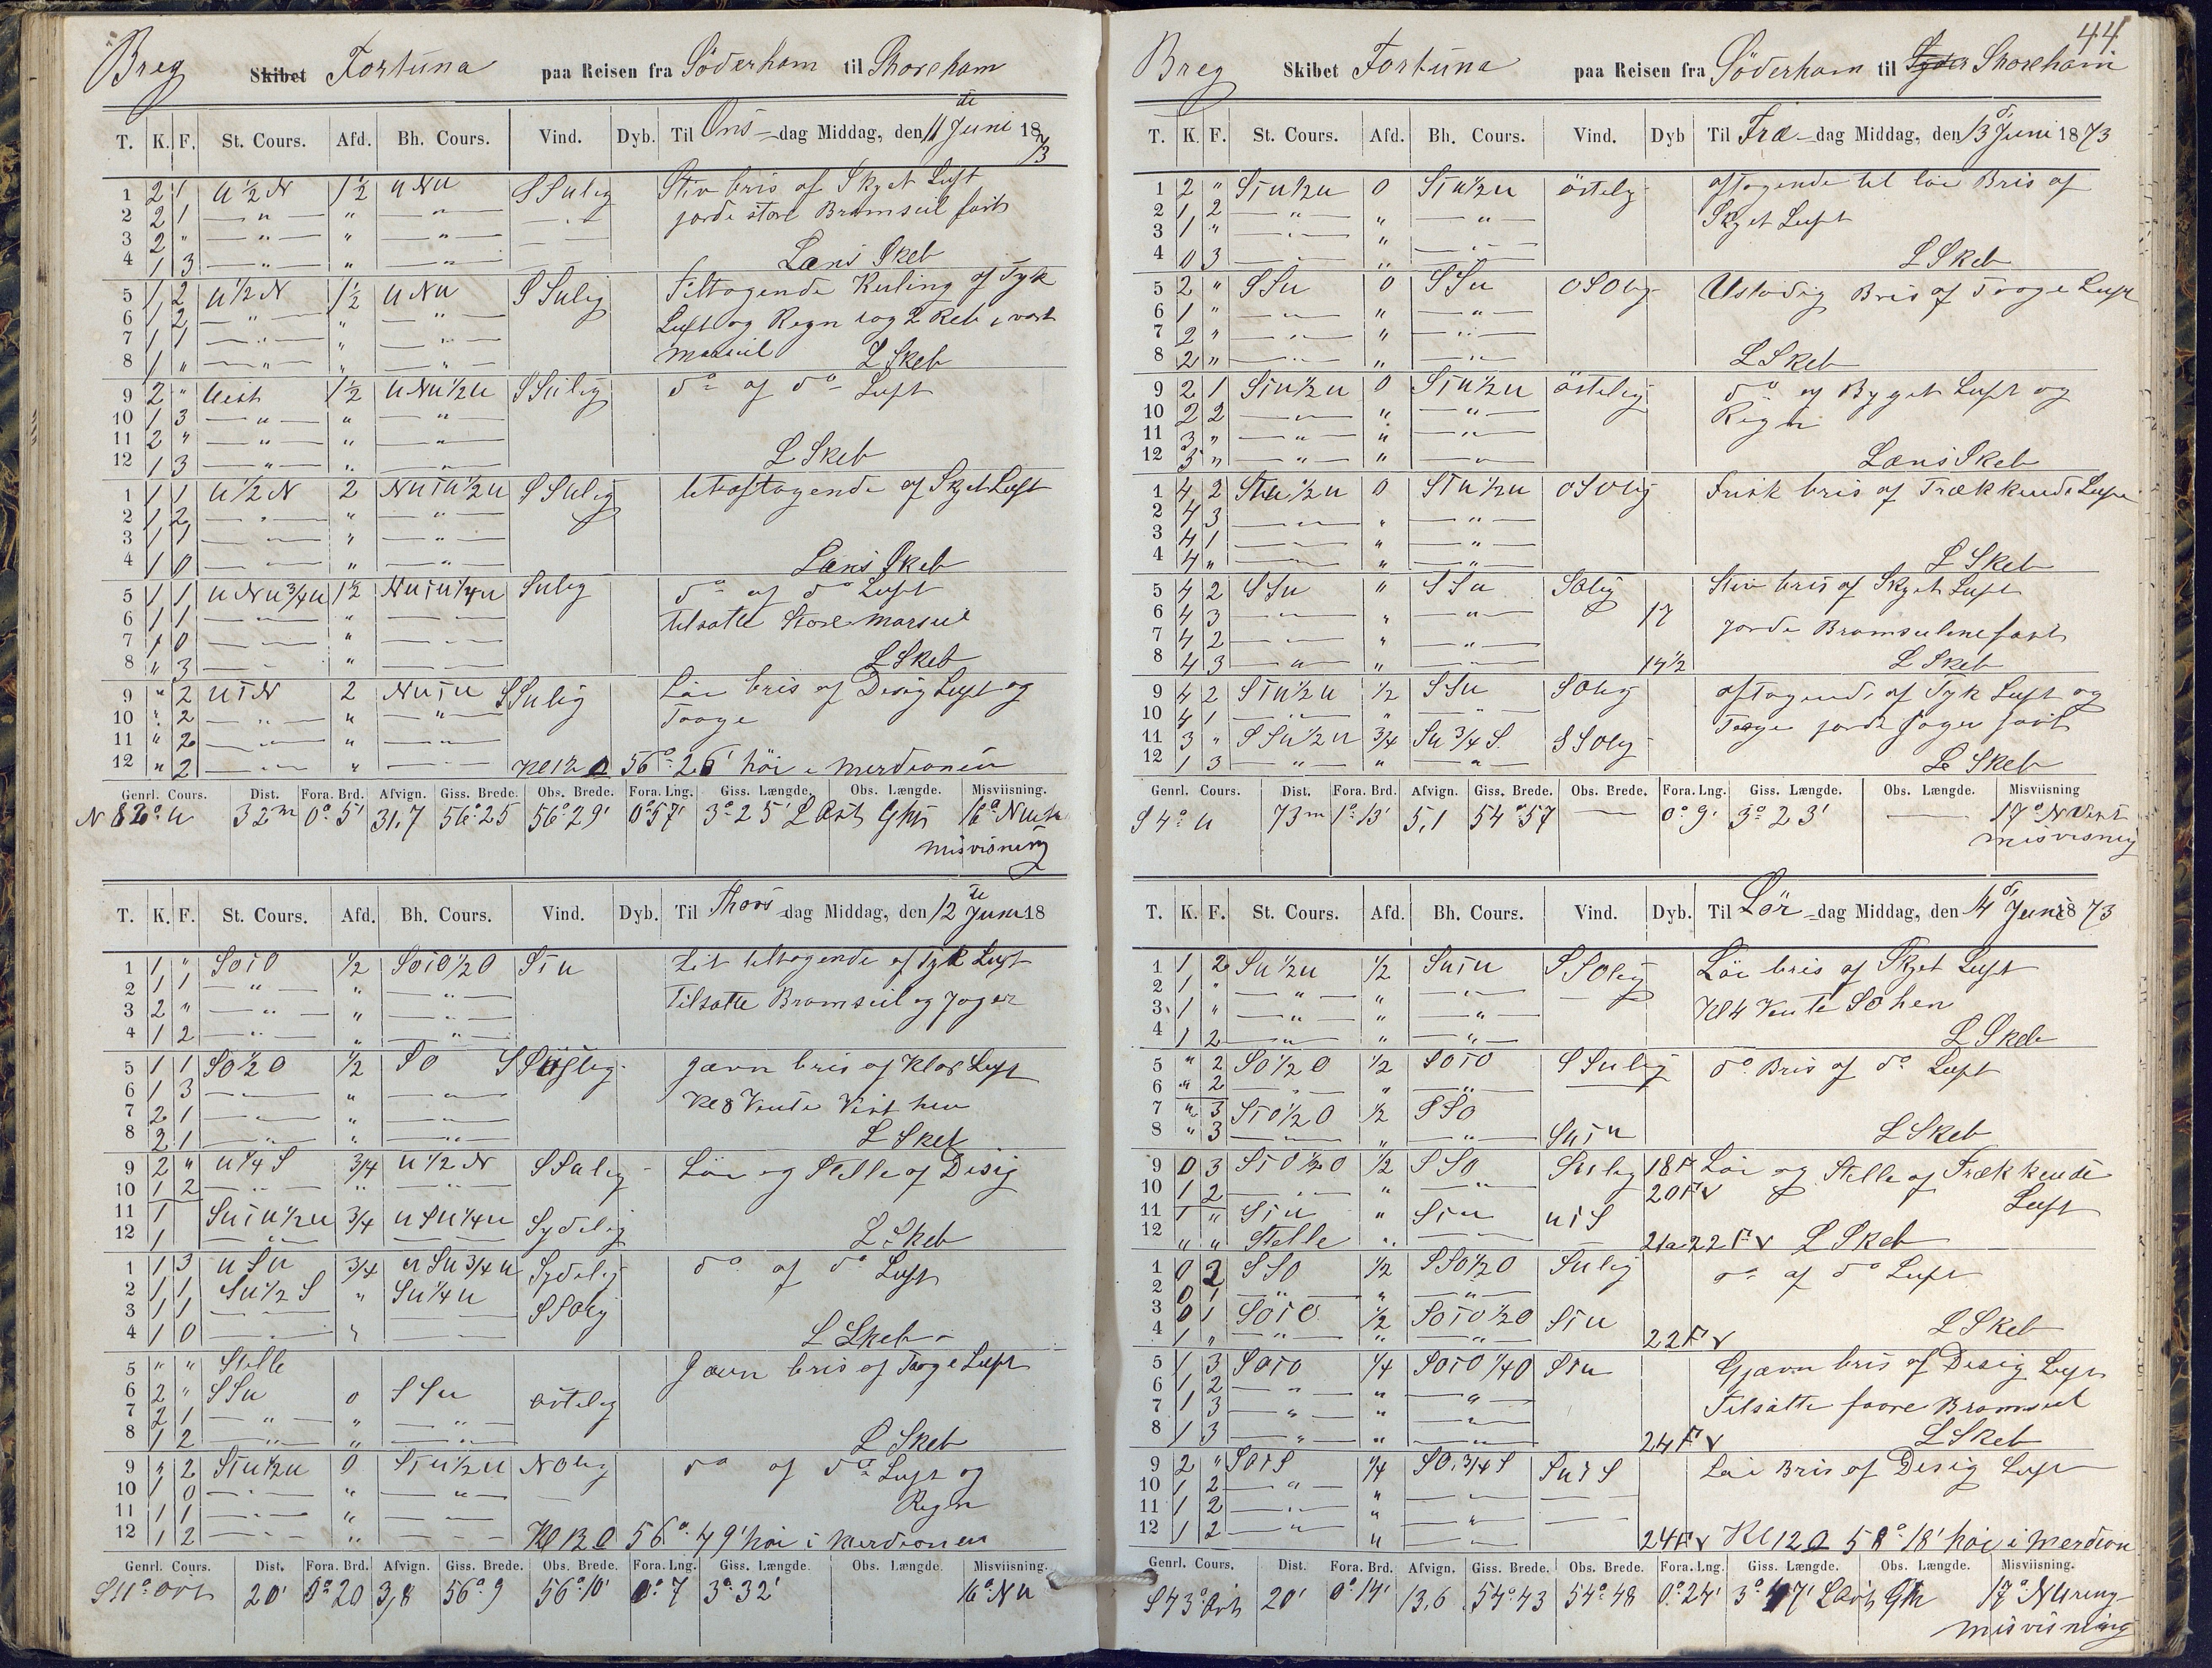 Breg Skibet Fortuna paa Reisen fra Söderham til Shoreham
T. K. F. St. Cours. Afd. Bh. Cours. Vind. Dyb. Til Ons-dag Middag, den 11 te Juni 1873
1 2 1 u ½ N 1½ u Nu SSulig Stiv bris af Skyet Luft
2 2 1 " " " jorde store Bramseil fast
3 2 " " " "
4 1 3 " " " Læns Skeb
5 1 2 u ½ N 1½ u Nu SSulig Tiltagende Kuling af Tyk
6 1 2 " " " Luft og Regn tog 2 Reb i vort
7 1 1 " " "
8 1 " " " " Marseil L Skeb
9 2 " Uest 1½ u Nu ½ u SSulig do af do Luft
10 1 3 " " "
11 2 " " " "
12 1 3 " " " L Skeb
1 1 1 u ½ N 2 Nuiu ½ u SSulig aftagende af Skyet Luft
2 1 2 " " "
3 1 1 " " "
4 1 0 " " " Læns Skeb
5 1 1 u Nu ¾ u 1½ Nuiu ¼ u Sulig do af do Luft
6 1 1 " " " tilsatte Store Marseil
7 1 0 " " "
8 " 3 " " L Skeb
9 " 2 uiN 2 Nuiu SSulig Löi bris af Disig Luft og
10 " 2 " " " Taage
11 " 2 " " "
12 " 2 " " Kl 12 56° 26' höi i Merdionen
Genrl. Cours. Dist. Fora. Brd. Afvign. Giss. Brede. Obs. Brede. Fora. Lng. Giss. Længde. Obs. Længde. Misviisning
N 82° u 32 m 0° 5' 31,7 56° 25 56° 29' 0° 57' 3° 25' L Ost 16°
misvisning
T. K. F. St. Cours. Afd. Bh. Cours. Vind. Dyb. Til Thors-dag Middag, den 12 te Juni 18
1 1 " SoiO ½ SoiO ½ O Siu Lit tiltagende af Tyk Luft
2 1 1 " " " Tilsatte Bramseil og Jager
3 2 " " " "
4 1 2 " " "
5 1 1 SO ½ O ½ SO Jævn bris af Klar Luft
6 1 3 " " " Kl 8 Vente Vest hen
7 2 1 " " "
8 2 1 " " " L Skeb
9 2 " u ¼ S ¾ u ½ N SSulig Löi og Stelle af Disig
10 1 2 " " "
11 1 Suiu ½ u ¾ u Su ¼ u Sydelig
12 1 " L Skeb
1 1 3 u Su ¾ u Su ¾ u Sydelig do af do Luft
2 1 1 Su ½ S " Su ¼ u SSOlig
3 1 1
4 1 0 " L Skeb
5 " " Stelle Jævn bris af Taage Luft
6 2 " SSu 0 SSu östelig
7 2 1 " " "
8 1 2 " " " L Skeb
9 3 2 Siu ½ u 0 Siu ½ u NOlig do af do Luft og
10 1 0 " " " Regn
11 1 1 " "
12 1 2 " Kl 12 56° 49' höi i Merdionen
Genrl. Cours. Dist. Fora. Brd. Afvign. Giss. Brede. Obs. Brede. Fora. Lng. Giss. Længde. Obs. Længde. Misviisning.
S 11° Ost 20' 0° 20 3,8 56° 9 56° 10' 0° 7 3° 32' 16° Nu
44
Breg Skibet Fortuna paa Reisen fra Söderham til Shoreham
T. K. F. St. Cours. Afd. Bh. Cours. Vind. Dyb Til Fre-dag Middag, den 13 Juni 1873
1 2 " Siu ½ u 0 Siu ½ u östelig aftagende til löi Bris af
2 1 2 " " " Skyet Luft
3 1 " " " "
4 0 3 " " " L Skeb
5 2 " SSu 0 SSu OSOlig Ustadig Bris af Taage Luft
6 1 " " " "
7 2 " " " "
8 2 " " " " L Skeb
9 2 1 Siu ½ u 0 Siu ½ u östelig do af Bygst Luft og
10 2 2 " " " Regn
11 3 " " " "
12 3 " " " " Læns Skeb
1 4 2 Siu ½ u 0 Siu ½ u OSOlig Frisk bris af Trækkende Luft
2 4 3 " " "
3 4 1 " " "
4 4 " " " " L Skeb
5 4 2 SSu " SSu SOlig Stiv bris af Skyet Luft
6 4 3 " " " 17
7 4 2 " " " jorde Bramseilene fast
8 4 3 " " " 14½ L Skeb
9 4 2 Siu ½ u ½ SSu SOlig aftagende af Tyk Luft og
10 4 1 " " " Taage jorde Jager fast
11 3 " SSu ½ u ¾ Su ¾ S. SSOlig
12 1 3 " " " L Skeb
Genrl. Cours. Dist. Fora. Brd. Afvign. Giss. Brede. Obs. Brede. Fora. Lng. Giss. Længde. Obs. Længde. Misviisning
S 4° u 73 m 1° 13' 5,1 54° 57 — 0° 9' 3° 23' — 17° N Vest
misvisning
T. K. F. St. Cours. Afd. Bh. Cours. Vind. Dyb. Til Lör-dag Middag, den 14 Juni 1873
1 1 2 Su ½ u ½ Suiu SSOlig Löi bris af Skyet Luft
2 1 " " " "
3 1 " " " " Kl 4 Vente SO hen
4 1 2 " " " L Skeb
5 " 2 SO ½ O ½ SOiO SSulig do Bris af do Luft
6 " 2 " " "
7 " 3 SiO ½ O ½ SSO
8 " 3 " " " Suiu L Skeb
9 0 3 SiO ½ O ½ SSO Sulig 18 F Löi og Stelle af Trækkende
10 1 2 " " " 20 F v Luft
11 1 " Siu " Siu uiS
12 " " Stelle " 21 a 22 F v L Skeb
1 0 2 SSO ½ SSO ½ O Sulig do af do Luft
2 0 1 " " "
3 0 1 SOiO ½ SOiO ½ O Siu
4 1 " " " " 22 F v L Skeb
5 1 3 SOiO ¼ SOiO ¼ O Siu Gjævn bris af Disig Luft
6 1 2 " " "
7 1 3 " " " Tilsatte faare Bramseil
8 1 3 " " " 24 F v L Skeb
9 2 " SOiS ¼ SO. ¾ S SuiS Löi Bris af Disig Luft
10 1 2 " "
11 1 2 " " "
12 1 2 " " 24 F v Kl 12 58° 18' höi i Merdion
Genrl. Cours. Dist. Fora. Brd. Afvign. Giss. Brede. Obs. Brede. Fora. Lng. Giss. Længde. Obs. Længde. Misviisning.
S 43° Ost 20' 0° 14' 13,6 54° 43 54° 48 0° 24' 3° 47' L Ost 17°
misvisning